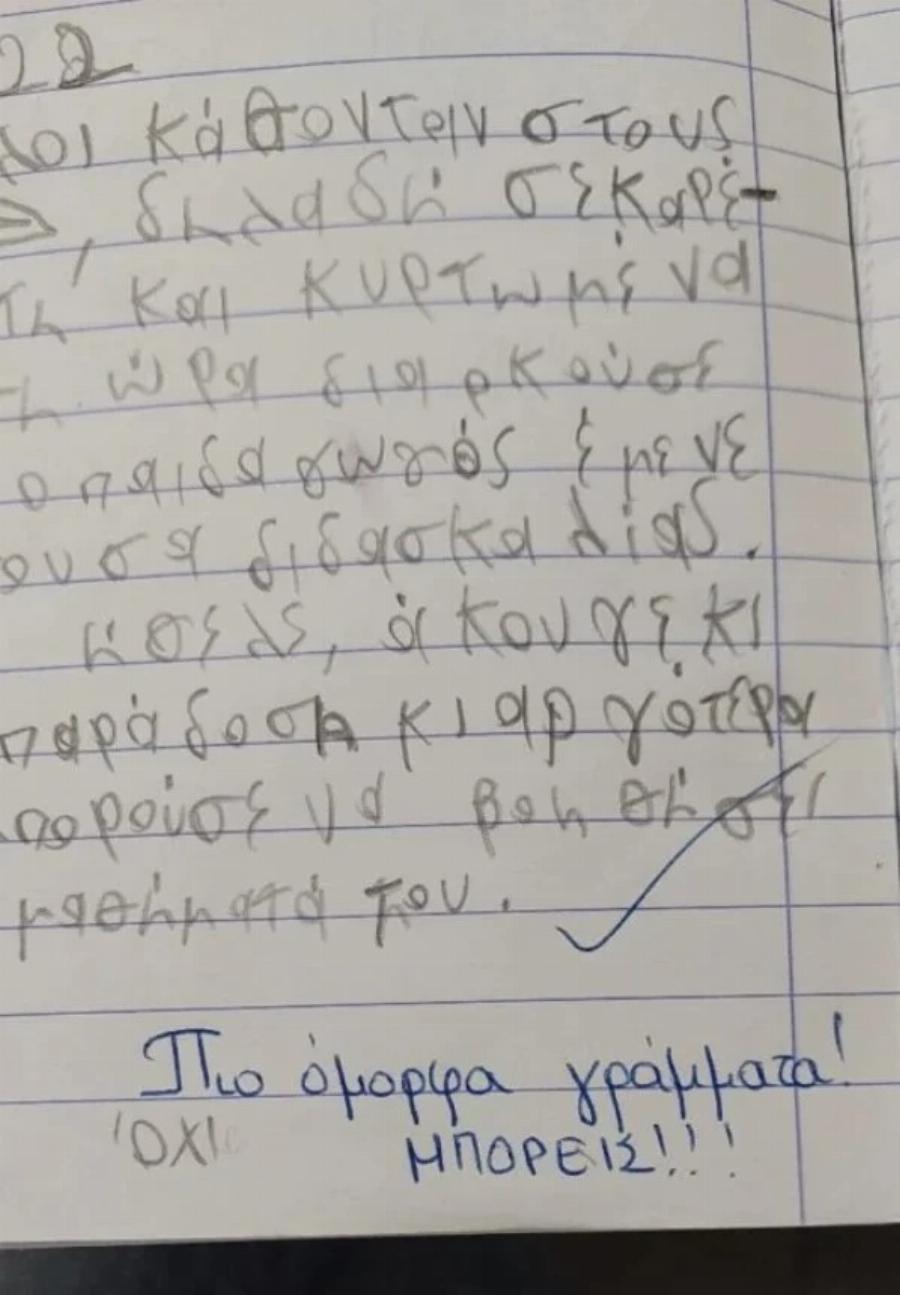 22
λοι κάθονταιν στους
, δηλαδή σεκαρέ-
τη και κυρτωμένα
η. ώρα διαρκούσε
ο παιδαγωγός έμενε
ουσα διδασκαλίας.
ήθελε, άκουγε κι
παράδοση κι αργότερα
πορούσε να βοηθήσει
μαθήματά του.
Πιο όμορφα γράμματα!
'ΌΧΙ
ΜΠΟΡΕΙΣ!!!